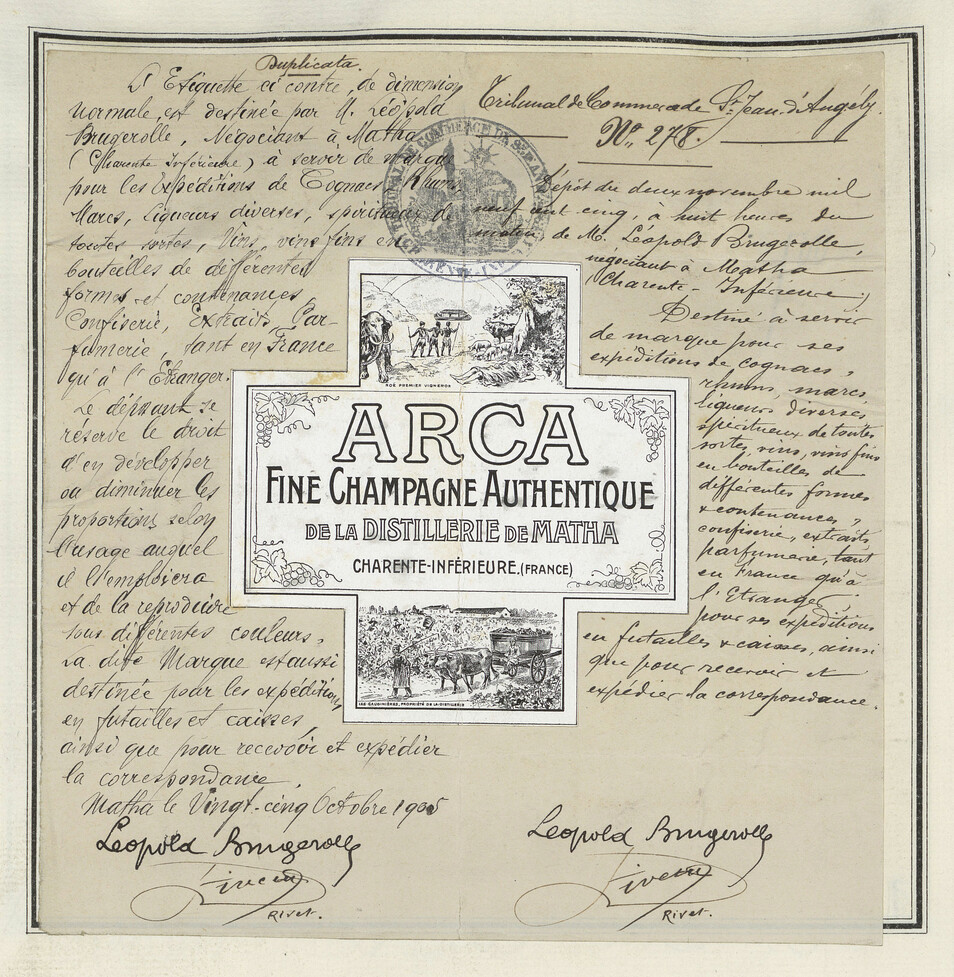 Duplicata.
L'Etiquette ci contre, de dimension
normale, est destinée par M. Léopold
Brugerolle, Négociant à Matha
(Charente Inférieure) à servir de marque
pour les expéditions de Cognacs, Rhums
Marcs, Liqueurs diverses, spiritueux de
toutes sortes, Vins, vins fins en
bouteilles de différentes
formes et contenances
Confiserie, Extraits, Par-
fumerie, tant en France
qu'à l'Etranger.
Le déposant se
réserve le droit
d'en développer
ou diminuer les
proportions selon
l'usage auquel
il l'emploiera
et de la reproduire
sous différentes couleurs,
La dite Marque est aussi
destinée pour les expéditions
en futailles et caisses,
ainsi que pour recevoir et expédier
la correspondance.
Matha le Vingt-cinq Octobre 1905
Leopold Brugerolle
Rivet.
Tribunal de Commerce de St Jean d'Angély.
No. 278.
Dépôt du deux novembre mil
neuf cent cinq, à huit heures du
matin, de M. Léopold Brugerolle,
négociant à Matha
(Charente-Inférieure)
Destiné à servir
de marque pour ses
expéditions de cognacs,
rhums, marcs,
liqueurs diverses
spiritueux de toutes
sortes, vins, vins fins
en bouteilles de
différentes formes
& contenances,
confiserie, extraits
parfumerie, tant
en France qu'à
l'Etranger,
pour ses expéditions
en futailles & caisses, ainsi
que pour recevoir et
expédier la correspondance.
Leopold Brugerolle
Rivet.
NOÉ PREMIER VIGNERON
ARCA
FINE CHAMPAGNE AUTHENTIQUE
DE LA DISTILLERIE DE MATHA
CHARENTE-INFÉRIEURE.(FRANCE)
PROPRIÉTÉ DE LA DISTILLERIE